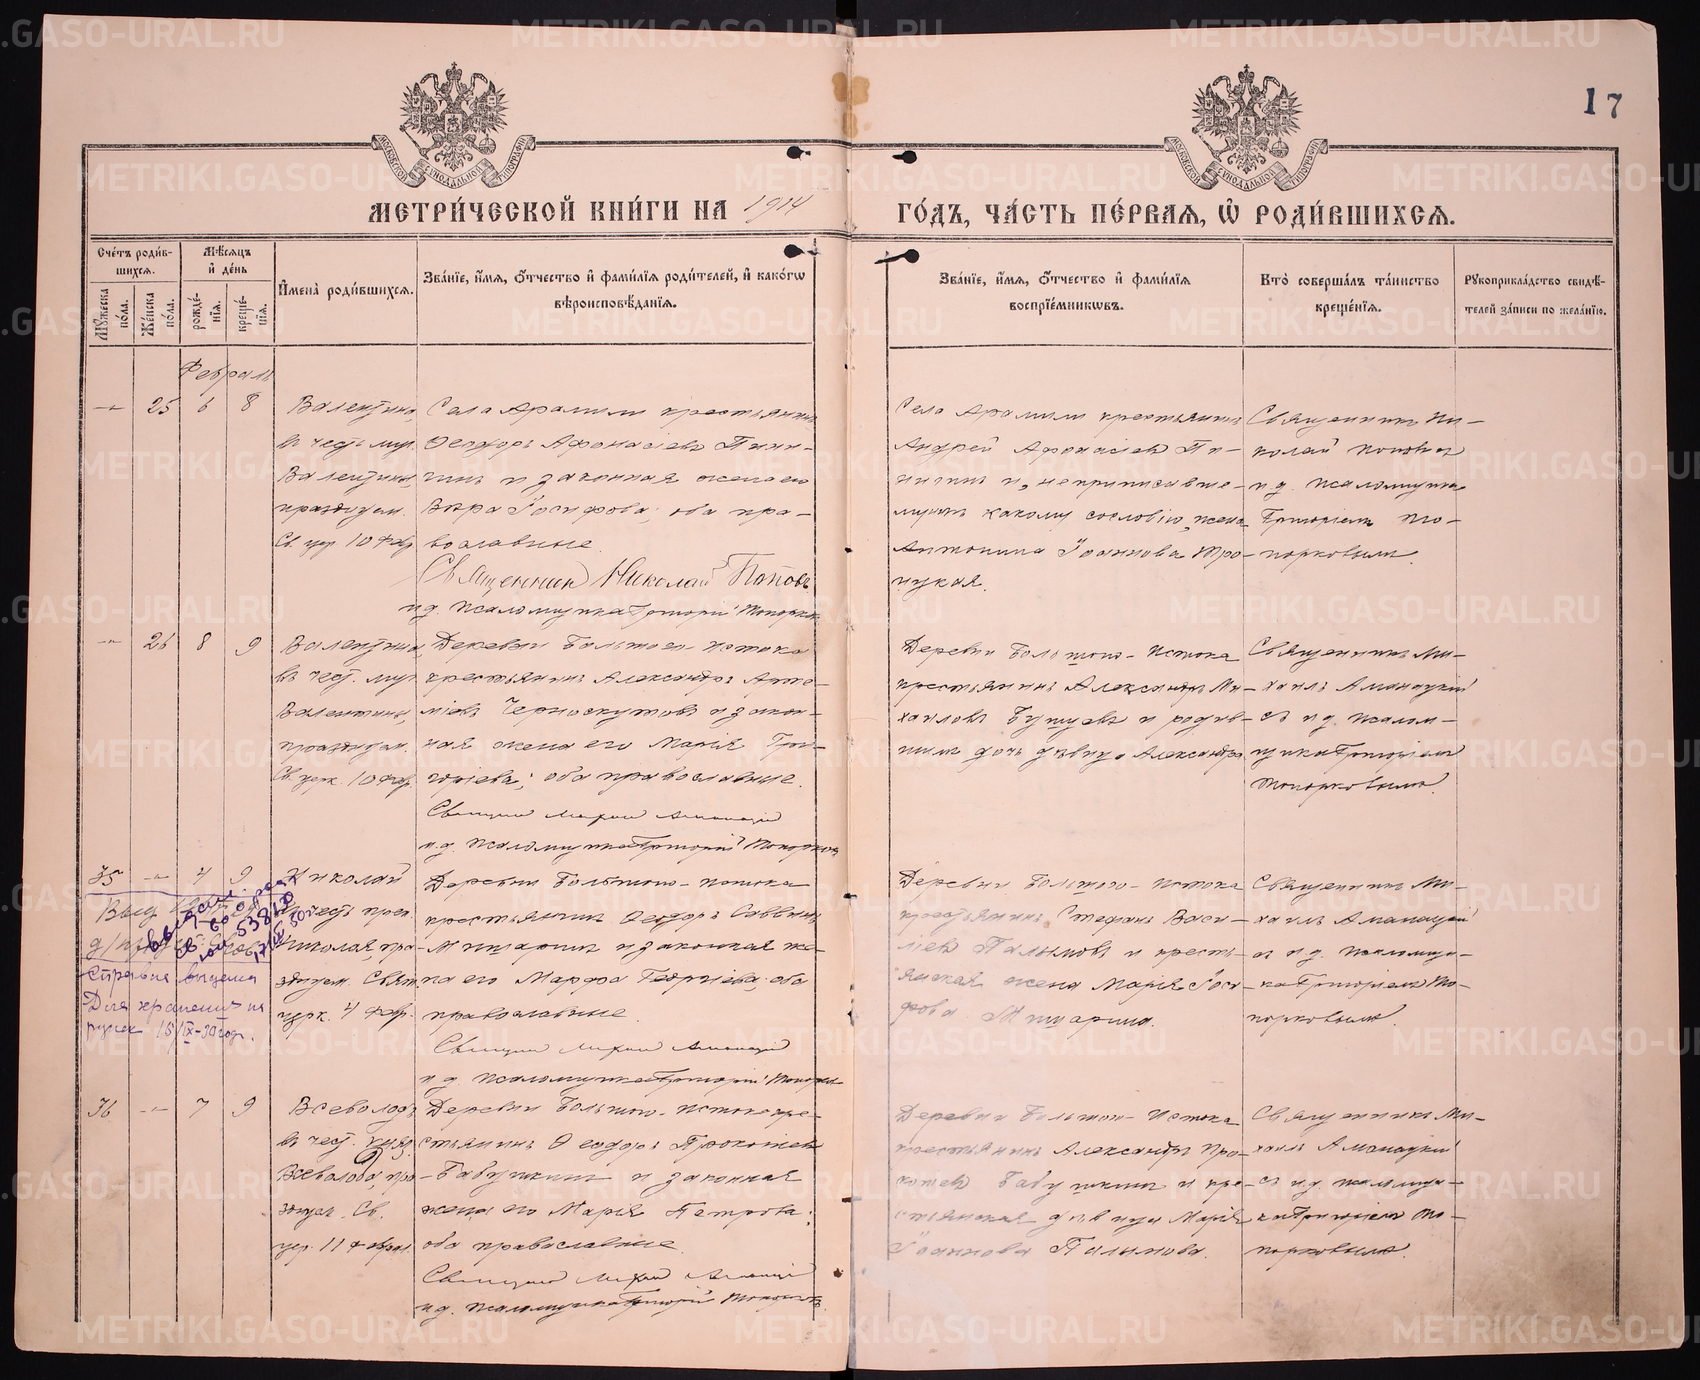 17
МЕТРИ́ЧЕСКОЙ КНИ́ГИ НА 1914
ГО́ДЪ, ЧА́СТЬ ПЕ́РВАѦ, Ѡ҆ РОДИ́ВШИХСѦ.
Сче́тъ роди́в-
шихсѧ.
Мꙋ́жеска по́ла.
Же́нска по́ла.
Мѣ́сяцъ
и҆ де́нь
рожде́-
нїѧ.
креще́-
нїѧ.
И҆мена̀ роди́вшихсѧ.
Зва́нїе, и҆́мѧ, ѻ҆́тчество и҆ фами́лїѧ роди́телей, и҆ како́гѡ
вѣроисповѣ́данїѧ.
Зва́нїе, и҆́мѧ, ѻ҆́тчество и҆ фами́лїѧ
воспрїе́мникѡвъ.
Кто̀ соверша́лъ та́инство
креще́нїѧ.
Рꙋкоприкла́дство свидѣ́-
телей за́писи по жела́нїю.
Февраль
25 6 8
Валентина,
въ честь муч.
Валентины
празднуем.
Св. цер. 10 Фев.
Села Арамили крестьянинъ
Ѳеодоръ Афонасіевъ Пини-
гинъ и законная жена его
Вѣра Іосифова; оба пра-
вославные.
Священникъ Николай Поповъ
и.д. псаломщика Григорій Топорков
Села Арамили крестьянинъ
Андрей Афонасіевъ Пи-
нигинъ и, не приписавше-
муся къ какому сословію, жена
Антонина Іоаннова Тро-
ицкая.
Священникъ Ни-
колай Поповъ с
и.д. псаломщика
Григоріемъ То-
порковымъ.
26 8 9
Валентина,
въ чест. муч.
Валентины,
празднуем.
Св. церк. 10 Фев.
Деревни Большого-Истока
крестьянинъ Александръ Арте-
міевъ Черноскутовъ и закон-
ная жена его Марія Гри-
горіева; оба православные.
и.д. псаломщика Григорій Топорков
Деревни Большого-Истока
крестьянинъ Александръ Ми-
хаиловъ Бушуевъ и родив-
шимъ дочь дѣвица Александра
Священникъ Ми-
хаилъ Аманацкій
съ и.д. псалом-
щика Григоріемъ
Топорковымъ.
35 4 9
Николай
въ честь преп.
Николая, пра-
зднуем. Свят.
церк. 4 Фев.
Деревни Большого-Истока
крестьянинъ Ѳеодоръ Саввинъ
Мишаринъ и законная же-
на его Марфа Георгіева; оба
православные.
и.д. псаломщика Григорій Топорков
Справка выдана
Для хранения на
руках 15/IX-30 года.
Деревни Большого-Истока
крестьянинъ Стефанъ Васи-
льевъ Палымовъ и кресть-
янская жена Марія Іоси-
фова Мишарина.
Священникъ Ми-
хаилъ Аманацкій
съ и.д. псаломщи-
ка Григоріемъ То-
порковымъ.
36 7 9
Всеволодъ
въ чест. княз.
Всеволода, пра-
зднуем. Св.
цер. 11 Феврал.
Деревни Большого-Истока кре-
стьянинъ Ѳеодоръ Прокопіев
-Бабушкинъ и законная
жена его Марія Петрова;
оба православные.
и.д. псаломщика Григорій Топорков
Деревни Большого-Истока
крестьянинъ Александръ Про-
копіевъ Бабушкинъ и кре-
стьянская дѣвица Марія
Іоаннова Палымова.
Священникъ Ми-
хаилъ Аманацкій
съ и.д. псаломщи-
ка Григоріемъ То-
порковымъ.
METRIKI.GASO-URAL.RU